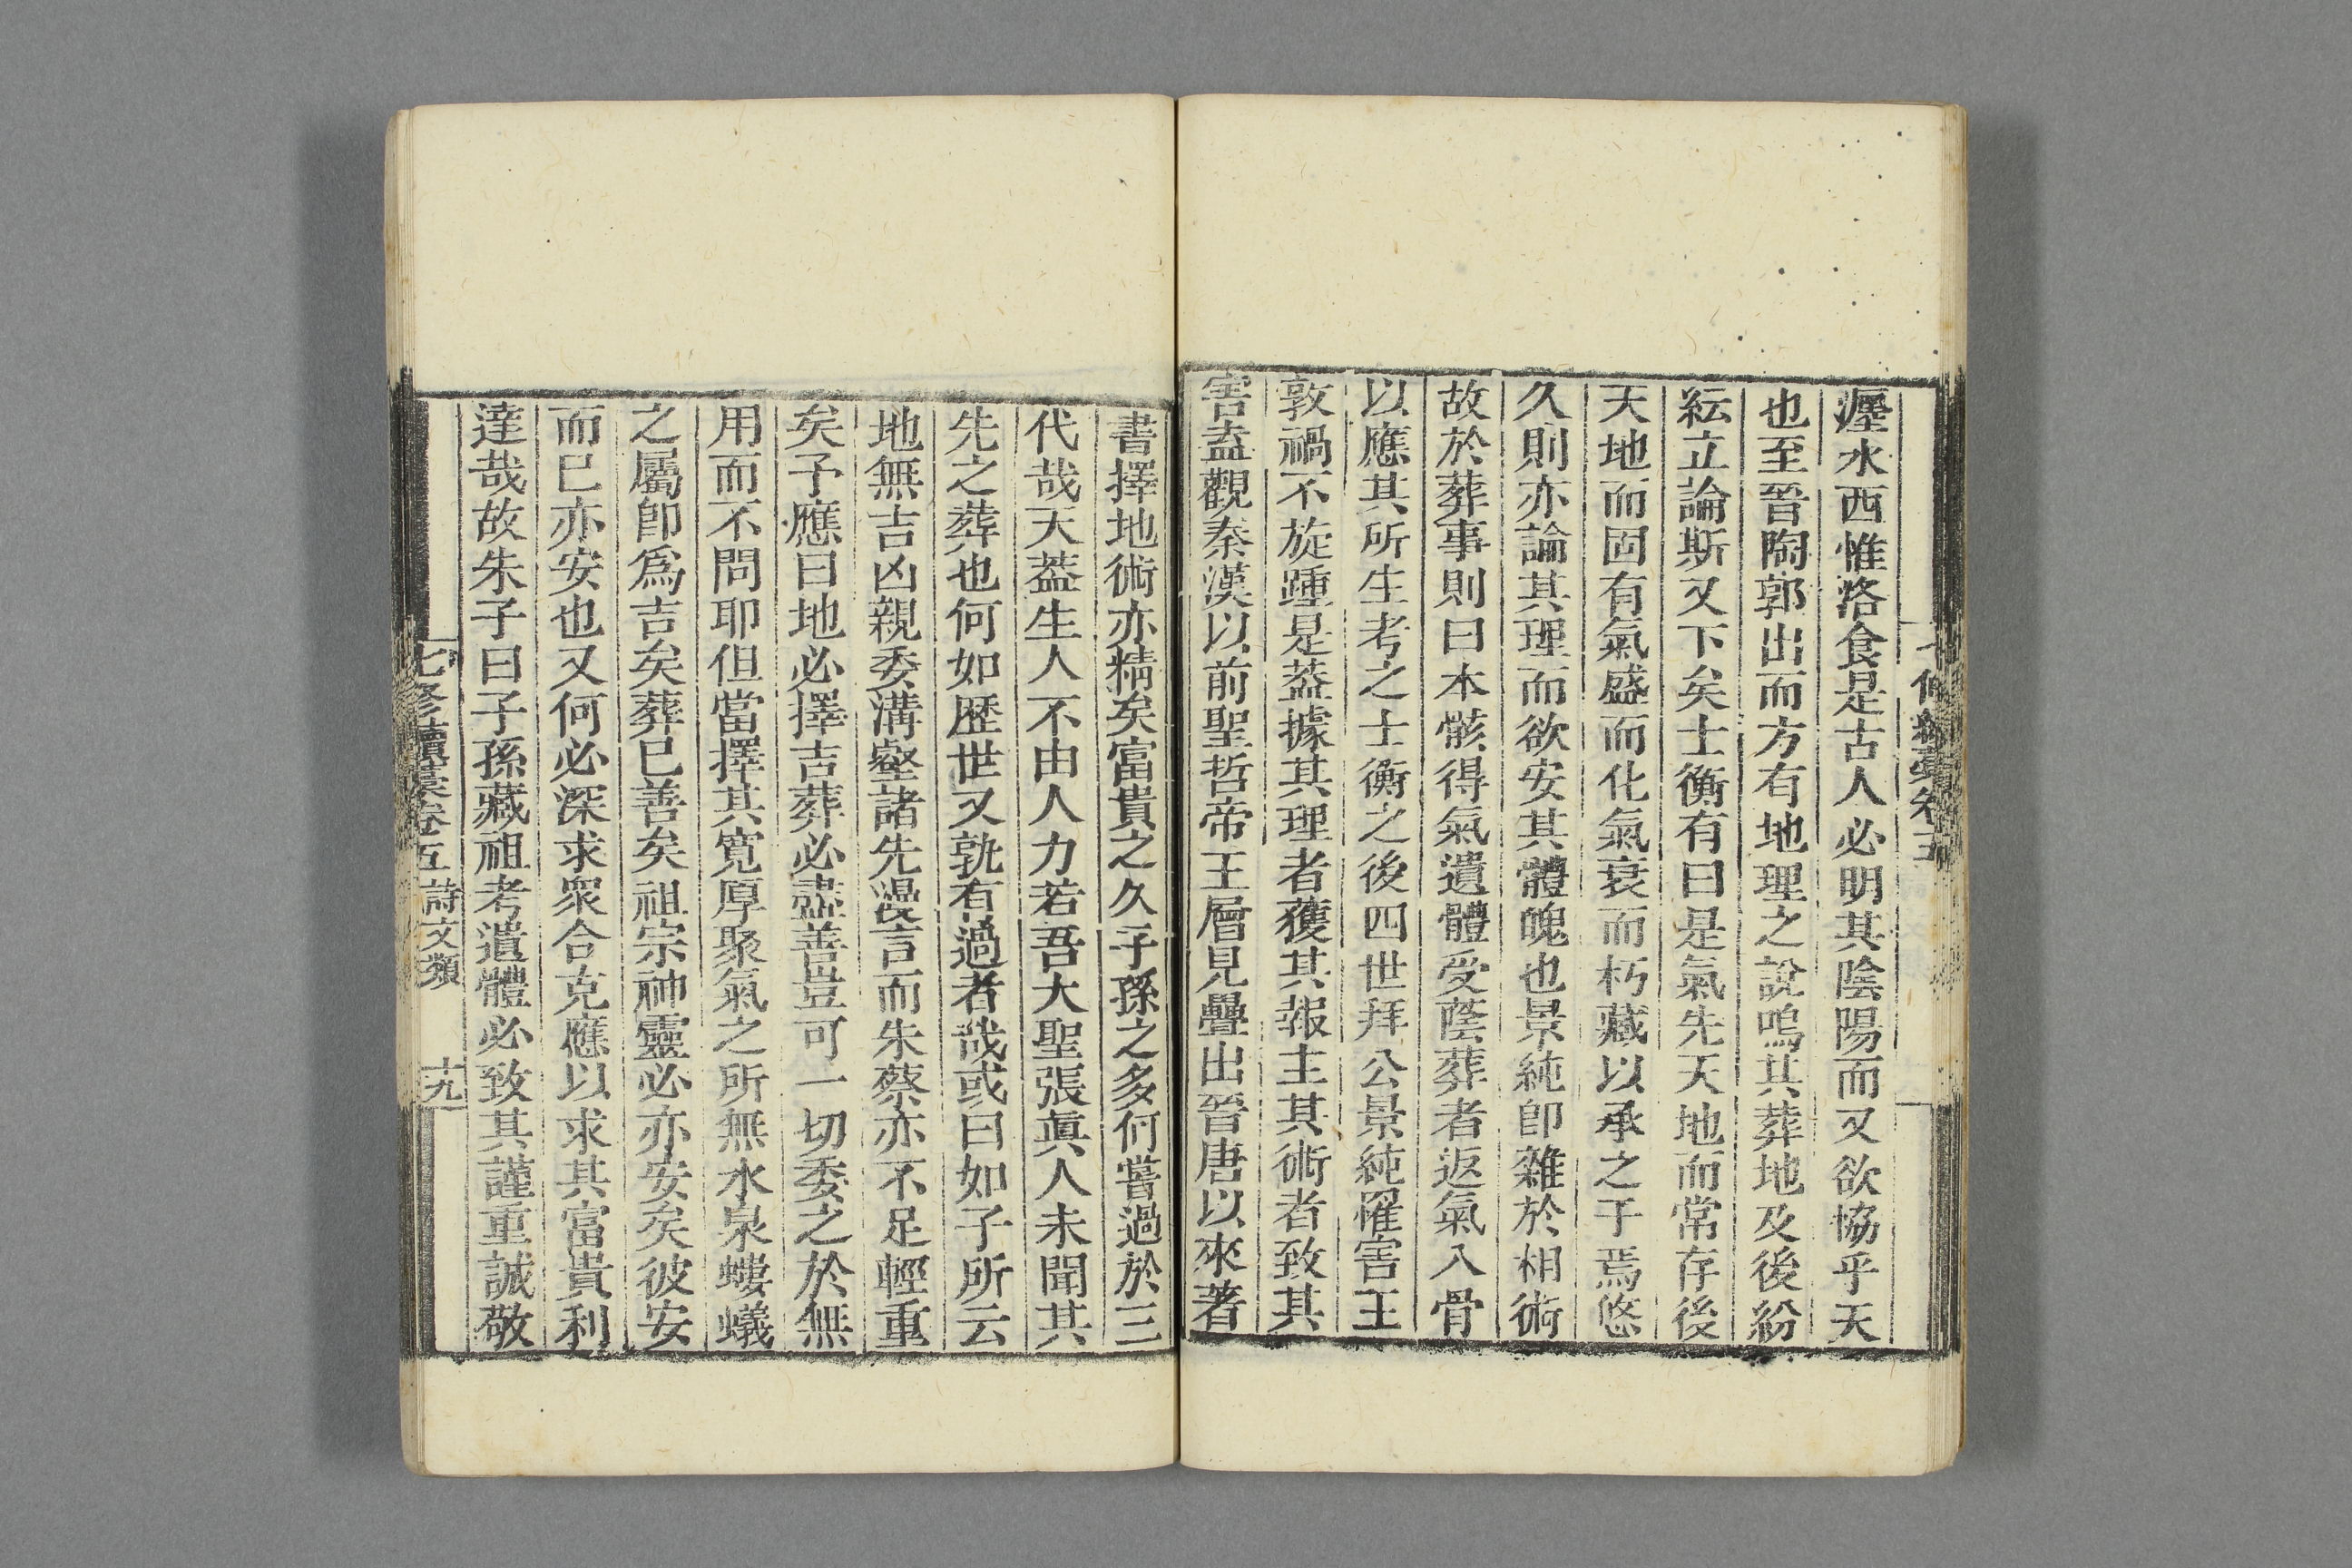 瀍水西惟洛食是古人必明其陰陽而又欲協乎天
也至晉陶郭出而方有地理之說嗚其葬地及後紛
紜立論斯又下矣士衡有曰是氣先天地而常存後
天地而固有氣盛而化氣衰而朽藏以承之于焉悠
久則亦論其理而欲安其體魄也景純卽雜於相術
故於葬事則曰本骸得氣遺體受蔭葬者返氣入骨
以應其所生考之士衡之後四世拜公景純罹害王
敦禍不旋踵是葢據其理者獲其報主其術者致其
害盍觀秦漢以前聖哲帝王層見疊出晉唐以來著
書擇地術亦精矣富貴之久子孫之多何嘗過於三
代哉天葢生人不由人力若吾大聖張眞人未聞其
先之葬也何如歷世又孰有過者哉或曰如子所云
地無吉凶親委溝壑諸先漫言而朱蔡亦不足輕重
矣予應曰地必擇吉葬必盡善豈可一切委之於無
用而不問耶但當擇其寬厚聚氣之所無水泉螻蟻
之屬卽爲吉矣葬已善矣祖宗神靈必亦安矣彼安
而已亦安也又何必深求衆合克應以求其富貴利
達哉故朱子曰子孫藏祖考遺體必致其謹重誠敬
七修續藁卷五 詩文類 十九